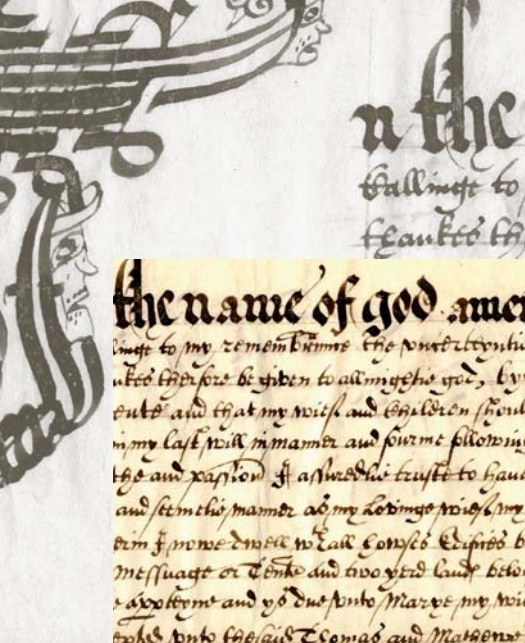 n the
Callinge to
thankes th
the name of god amen
linge to my remembrance the uncertayntie
nkes therfore be given to allmightie god, by
and that my wief and Children shoul
in my last will in manner and fourme followinge
the and passion I assuredlie truste to have
and manner as my Lovinge wief my
I nowe dwell wth all howses Edifies b
messuage or Tente and two yerd lande belo
apperteyne and ys due unto Marye my wi
unto the said Thomas and Mathewe